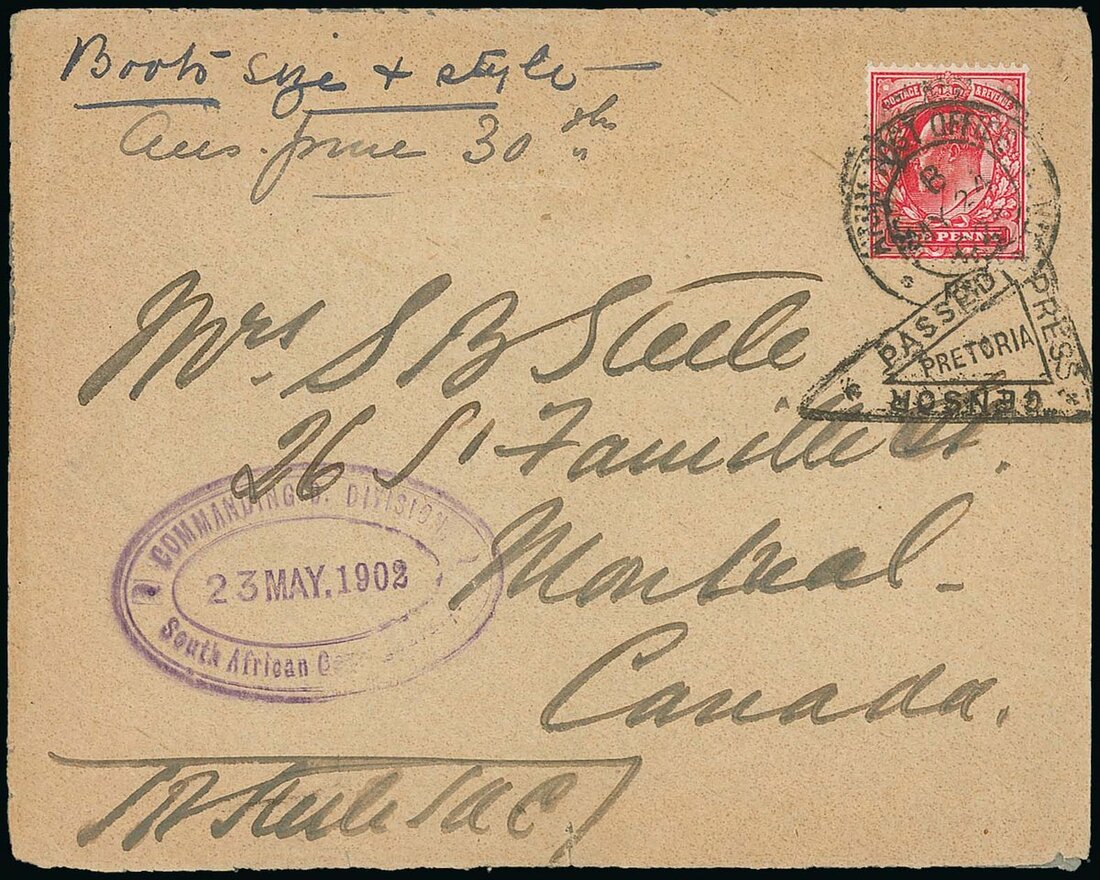 Boots size & style
Ans. June 30 ths
POSTAGE & REVENUE
ONE PENNY
POST OFFICE
B
MY 24
PASSED PRESS CENSOR
PRETORIA
Mrs S B Steele
26 St Famille St.
Montreal
Canada.
COMMANDING B. DIVISION.
23 MAY. 1902
South African
SB Steele SAC